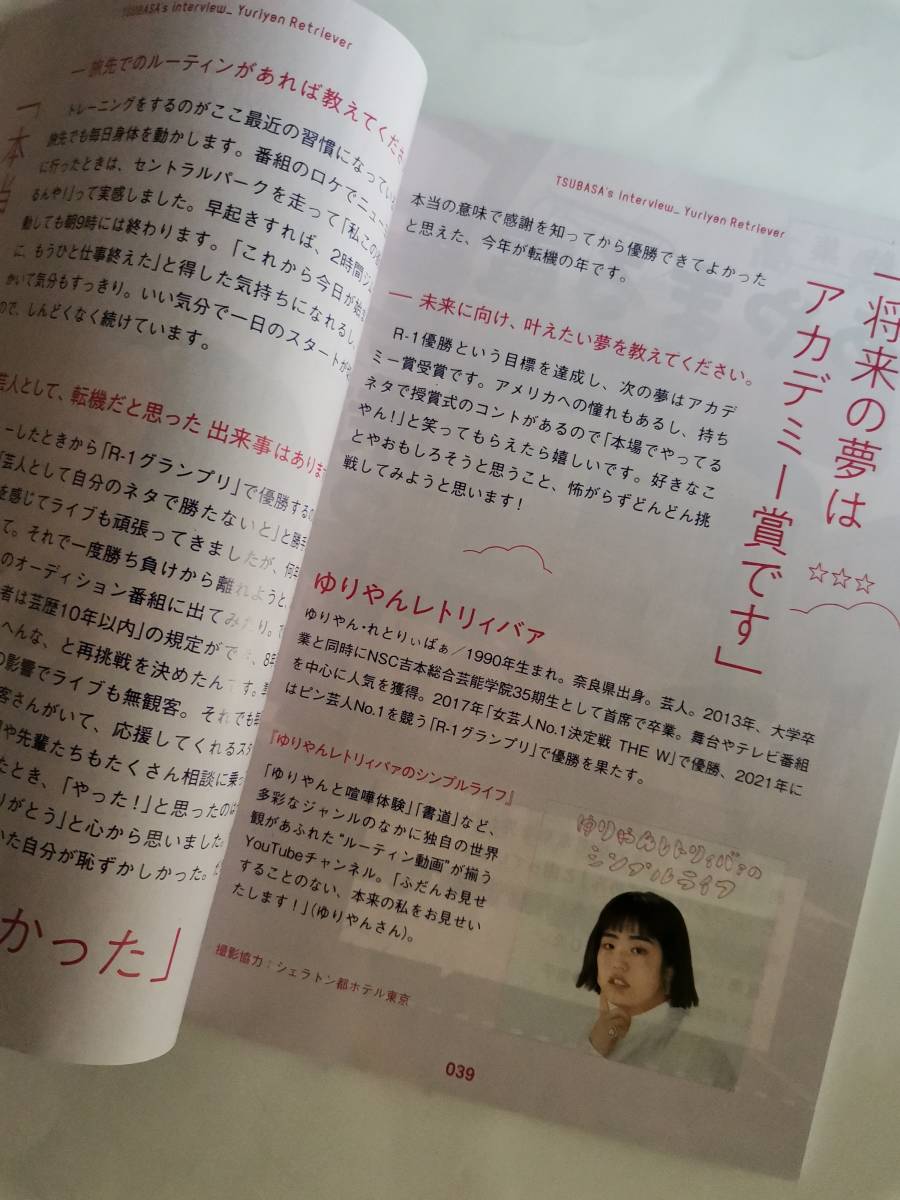 TSUBASA's interview_ Yuriyan Retriever
― 旅先でのルーティンがあれば教えてくださ
トレーニングをするのがここ最近の習慣になってい
旅先でも毎日身体を動かします。番組のロケでニュー
に行ったときは、セントラルパークを走って「私この
るんや!」って実感しました。早起きすれば、2時間ジ
動しても朝9時には終わります。「これから今日が始
に、もうひと仕事終えた」と得した気持ちになれるし、
かいて気分もすっきり。いい気分で一日のスタートが
ので、しんどくなく続けています。
芸人として、転機だと思った 出来事はありま
ーしたときから「R-1グランプリ」で優勝するの
「芸人として自分のネタで勝たないと」と勝手
を感じてライブも頑張ってきましたが、何年
て。それで一度勝ち負けから離れようと、
のオーディション番組に出てみたり。
者は芸歴10年以内」の規定ができ、8年
へんな、と再挑戦を決めたんです。
の影響でライブも無観客。それでも
客さんがいて、応援してくれるスタ
や先輩たちもたくさん相談に乗っ
たとき、「やった!」と思ったのは
りがとう」と心から思いました
いた自分が恥ずかしかった。
「本当
かった」
TSUBASA's interview_ Yuriyan Retriever
本当の意味で感謝を知ってから優勝できてよかった
と思えた、今年が転機の年です。
― 未来に向け、叶えたい夢を教えてください。
R-1優勝という目標を達成し、次の夢はアカデ
ミー賞受賞です。アメリカへの憧れもあるし、持ち
ネタで授賞式のコントがあるので「本場でやってる
やん!」と笑ってもらえたら嬉しいです。好きなこ
とやおもしろそうと思うこと、怖がらずどんどん挑
戦してみようと思います!
「将来の夢は
アカデミー賞です」
☆☆☆
ゆりやんレトリィバァ
ゆりやん・れとりぃばぁ/1990年生まれ。奈良県出身。芸人。2013年、大学卒
業と同時にNSC吉本総合芸能学院35期生として首席で卒業。舞台やテレビ番組
を中心に人気を獲得。2017年「女芸人No.1決定戦 THE W」で優勝、2021年に
はピン芸人No.1を競う「R-1グランプリ」で優勝を果たす。
『ゆりやんレトリィバァのシンプルライフ』
「ゆりやんと喧嘩体験」「書道」など、
多彩なジャンルのなかに独自の世界
観があふれた“ルーティン動画”が揃う
YouTubeチャンネル。「ふだんお見せ
することのない、本来の私をお見せい
たします!」(ゆりやんさん)。
ゆりやんレトリィバァの
シンプルライフ
撮影協力:シェラトン都ホテル東京
039